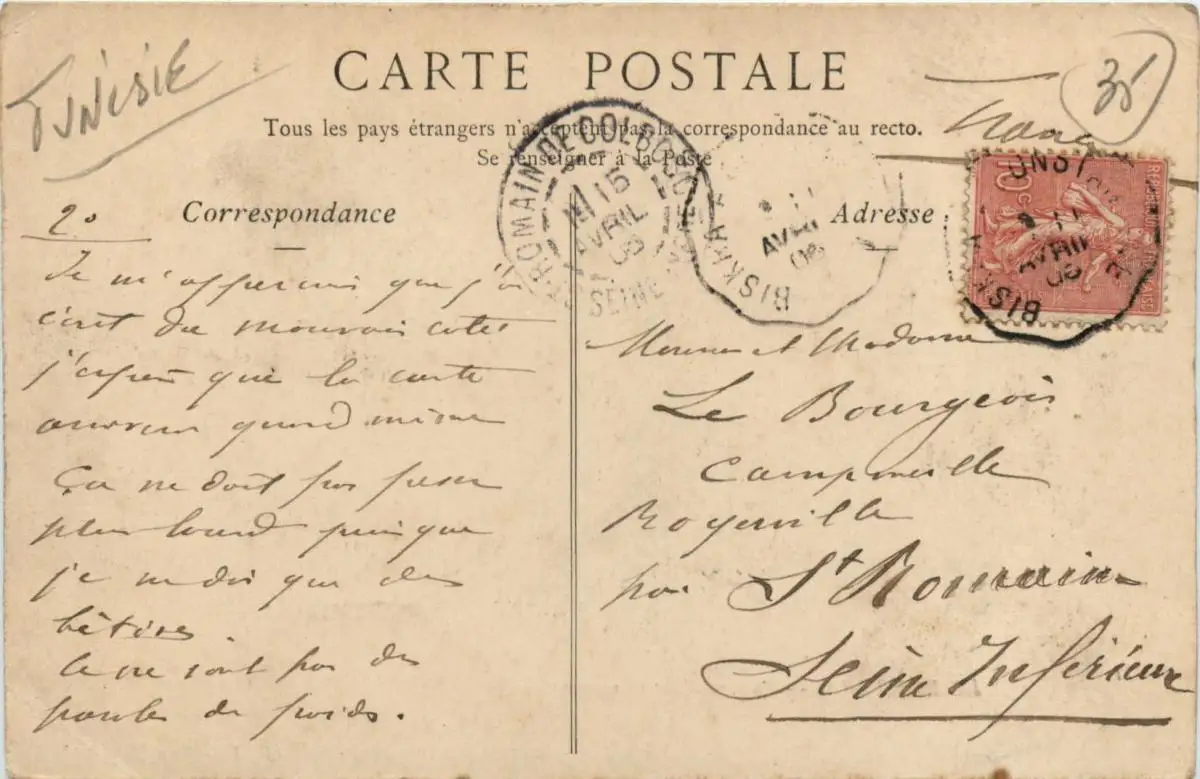 TUNISIE
35
CARTE POSTALE
Tous les pays étrangers n'acceptent pas la correspondance au recto.
Se renseigner à la Poste
Correspondance
Adresse
2º
Je m'apperçois que j'ai
écrit du mauvais coté
j'espère que la carte
arrivera quand même
Ça ne doit pas peser
plus lourd puisque
je ne dis que des
bêtises.
Ce ne sont pas des
paroles de poids.
ST-ROMAIN-DE-COLBOSC
15
AVRIL
06
SEINE
BISKRA A
11
AVRIL
06
10 c
BISK
AVRIL
06
Monsieur et Madame
Le Bourgeois
Campmeille
Rogerville
par St Romain
Seine Inférieure